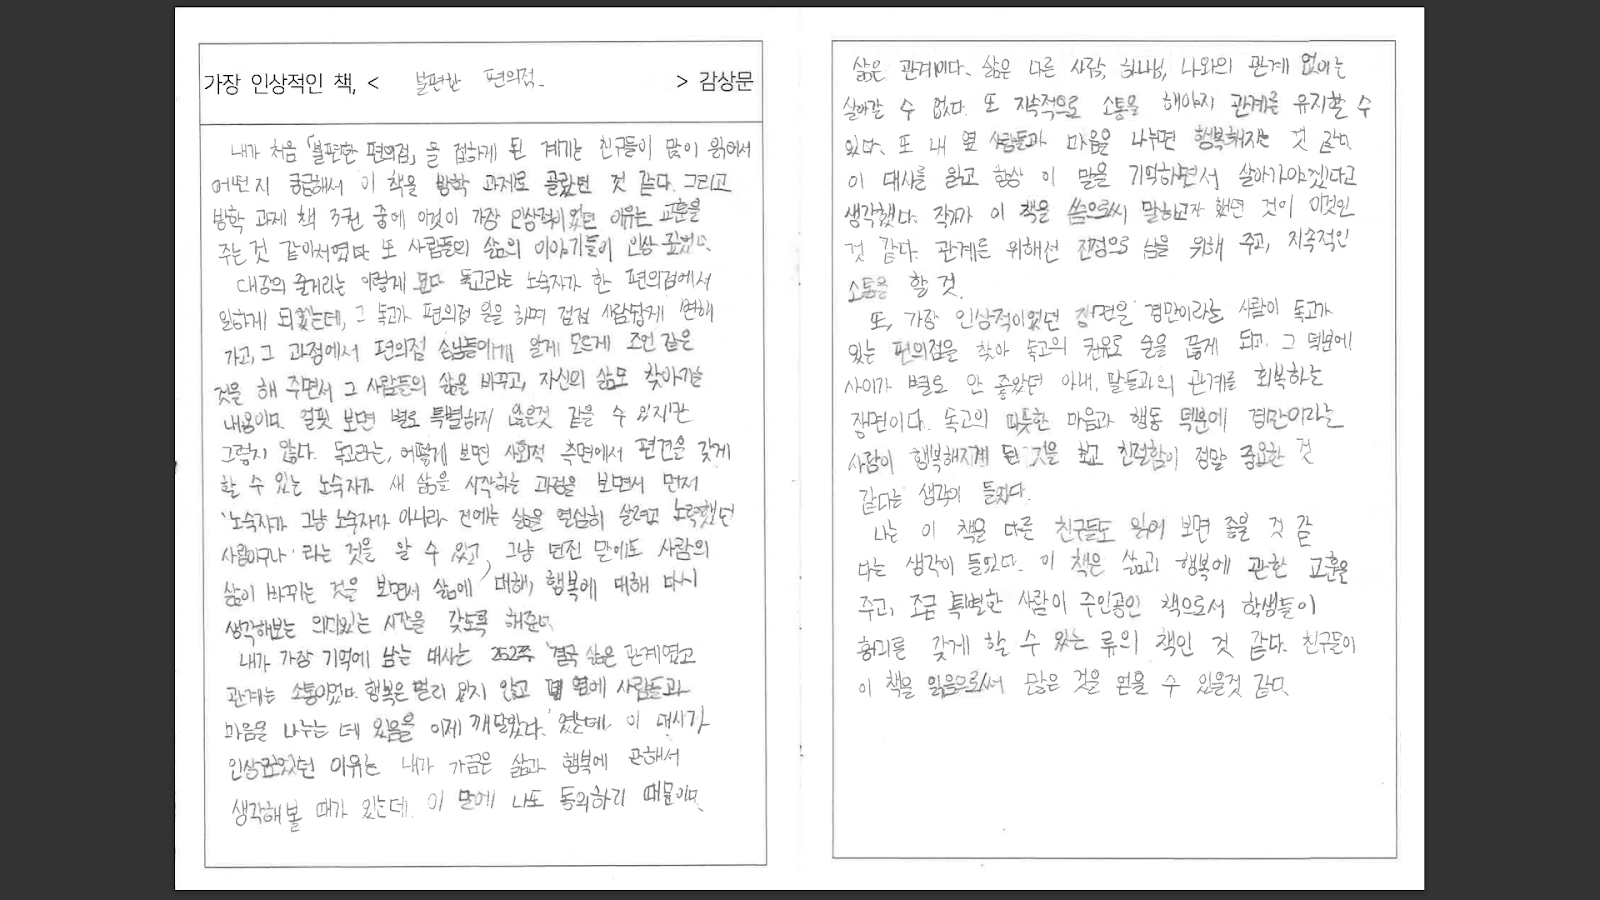 가장 인상적인 책, < 불편한 편의점. > 감상문
내가 처음 「불편한 편의점」을 접하게 된 계기는 친구들이 많이 읽어서
어떤지 궁금해서 이 책을 방학 과제로 골랐던 것 같다. 그리고
방학 과제 책 3권 중에 이것이 가장 인상적이었던 이유는 교훈을
주는 것 같아서였다 또 사람들의 삶의 이야기들이 인상 깊었다.
대강의 줄거리는 이렇게 된다 독고라는 노숙자가 한 편의점에서
일하게 되었는데, 그 독고가 편의점 일을 하며 점점 사람답게 변해
가고, 그 과정에서 편의점 손님들에게 알게 모르게 조언 같은
것을 해 주면서 그 사람들의 삶을 바꾸고, 자신의 삶도 찾아가는
내용이다. 얼핏 보면 별로 특별하지 않은것 같을 수 있지만
그렇지 않다. 독고라는, 어떻게 보면 사회적 측면에서 편견을 갖게
할 수 있는 노숙자가 새 삶을 시작하는 과정을 보면서 먼저
'노숙자가 그냥 노숙자가 아니라 전에는 삶을 열심히 살려고 노력했던
사람이구나' 라는 것을 알 수 있고, 그냥 던진 말에도 사람의
삶이 바뀌는 것을 보면서 삶에 대해, 행복에 대해 다시
생각해보는 의미있는 시간을 갖도록 해준다.
내가 가장 기억에 남는 대사는 252쪽 '결국 삶은 관계였고
관계는 소통이었다. 행복은 멀리 있지 않고 내 옆에 사람들과
마음을 나누는 데 있음을 이제 깨달았다.' 였는데, 이 대사가
인상깊었던 이유는 내가 가끔은 삶과 행복에 관해서
생각해볼 때가 있는데. 이 말에 나도 동의하기 때문이다.
삶은 관계이다. 삶은 다른 사람, 하나님, 나와의 관계 없이는
살아갈 수 없다. 또 지속적으로 소통을 해야지 관계를 유지할 수
있다. 또 내 옆 사람들과 마음을 나누면 행복해지는 것 같다.
이 대사를 읽고 항상 이 말을 기억하면서 살아가야겠다고
생각했다. 작가가 이 책을 씀으로써 말하고자 했던 것이 이것인
것 같다. 관계를 위해선 진정으로 남을 위해 주고, 지속적인
소통을 할 것.
또, 가장 인상적이었던 장면은 경만이라는 사람이 독고가
있는 편의점을 찾아 독고의 권유로 술을 끊게 되고, 그 덕분에
사이가 별로 안 좋았던 아내, 딸들과의 관계를 회복하는
장면이다. 독고의 따뜻한 마음과 행동 덕분에 경만이라는
사람이 행복해지게 된 것을 보고 친절함이 정말 중요한 것
같다는 생각이 들었다.
나는 이 책을 다른 친구들도 읽어 보면 좋을 것 같
다는 생각이 들었다. 이 책은 삶과 행복에 관한 교훈을
주고, 조금 특별한 사람이 주인공인 책으로서 학생들이
흥미를 갖게 할 수 있는 류의 책인 것 같다. 친구들이
이 책을 읽음으로써 많은 것을 얻을 수 있을것 같다.